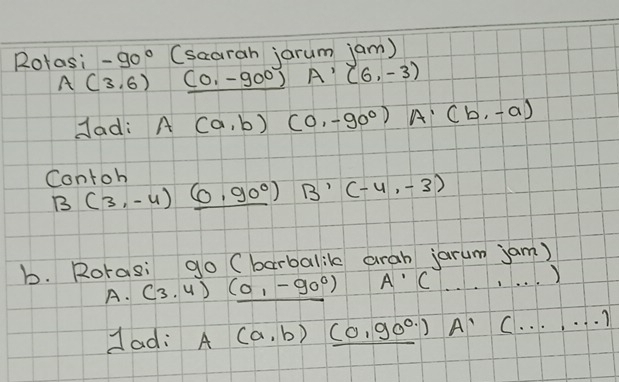 Rotasi -90° (searah jarum jam)
A (3,6) (0,-90°) A' (6,-3)
Jadi A (a,b) (0,-90°) A' (b,-a)
Contoh
B (3,-4) (0,90°) B' (-4,-3)
b. Rotasi 90 (barbalik arah jarum jam)
A. (3.4) (0,-90°) A' (....,...)
Jadi A (a,b) (0,90°.) A' (...,...)